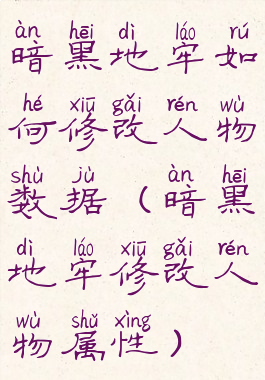 àn hēi dì láo rú
暗黑地牢如
hé xiū gǎi rén wù
何修改人物
shù jù àn hēi
数据（暗黑
dì láo xiū gǎi rén
地牢修改人
wù shǔ xìng
物属性）